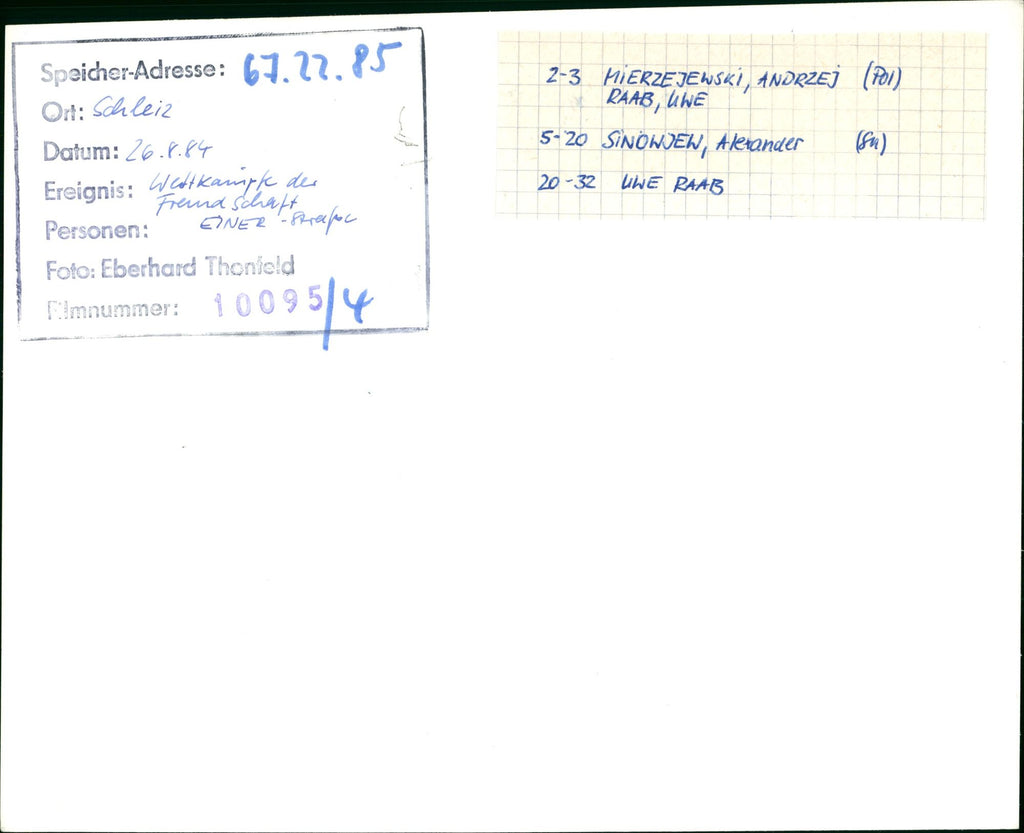 Speicher-Adresse: 67.22.85
Ort: Schleiz
Datum: 26.8.84
Ereignis: Wettkämpfe der
Freundschaft
EINER - Straße
Personen:
Foto: Eberhard Thonfeld
Filmnummer: 10095/4
2-3 MIERZEJEWSKI, ANDRZEJ (Pol)
RAAB, UWE
5-20 SINOWJEW, Alexander (SU)
20-32 UWE RAAB